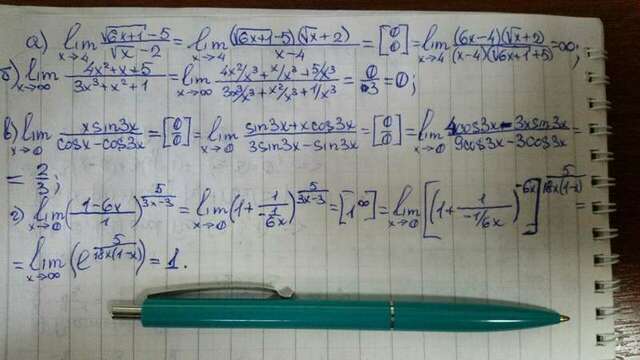 а) lim x→4 (√(6x+1) - 5)/(√x - 2) = lim x→4 ((√(6x+1) - 5)(√x + 2))/(x - 4) = [0/0] = lim x→4 ((6x - 4)(√x + 2))/((x - 4)(√(6x+1) + 5)) = ∞;
б) lim x→∞ (4x² + x + 5)/(3x³ + x² + 1) = lim x→∞ (4x²/x³ + x/x³ + 5/x³)/(3x³/x³ + x²/x³ + 1/x³) = 0/3 = 0;
в) lim x→0 (x sin3x)/(cosx - cos3x) = [0/0] = lim x→0 (sin3x + x cos3x)/(3sin3x - sin3x) = [0/0] = lim x→0 (4cos3x - 3x sin3x)/(9cos3x - 3cos3x) =
= 2/3;
г) lim x→0 ((1 - 6x)/1)^(5/(3x-3)) = lim x→0 (1 + 1/(-1/6x))^(5/(3x-3)) = [1^∞] = lim x→0 [(1 + 1/(-1/6x))^(-6x)]^(5/(18x(1-x))) =
= lim x→∞ (e^(5/(18x(1-x)))) = 1.